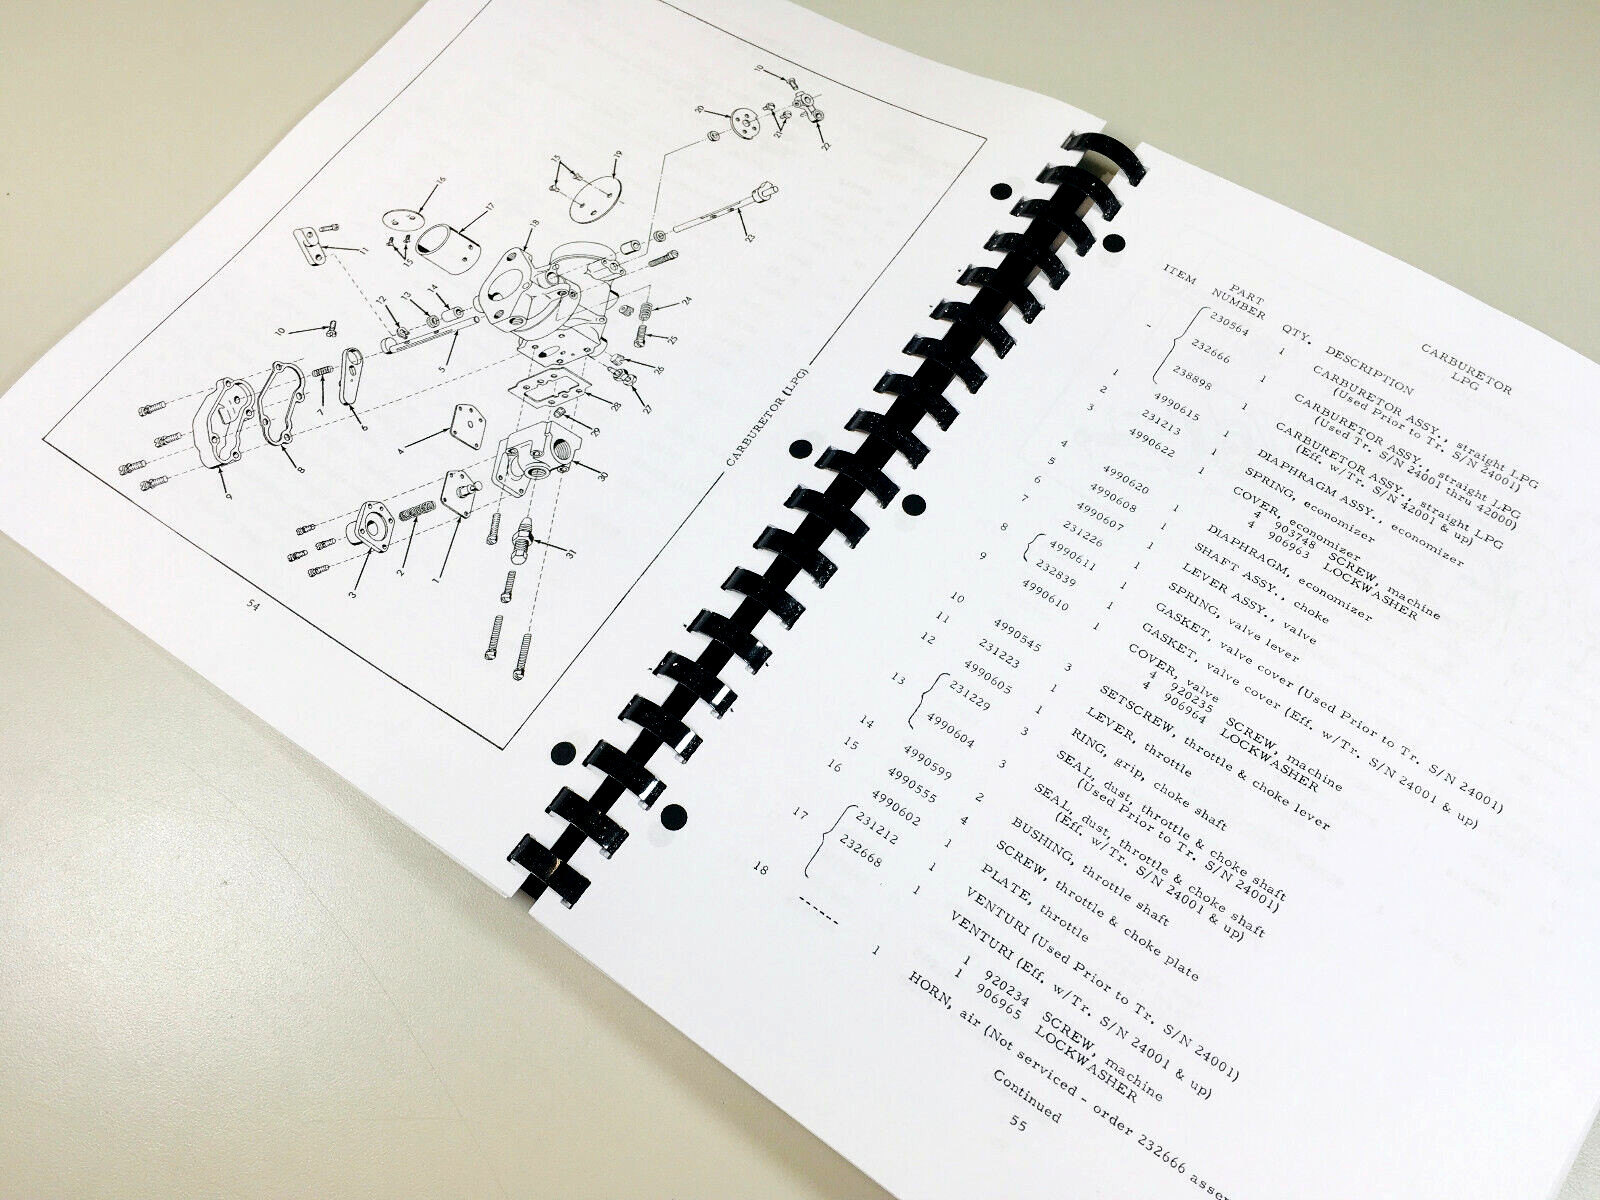 10
20
21
22
15
19
16
17
18
23
11
15
12
13
14
10
5
24
25
26
27
28
29
30
7
6
8
9
4
31
3
2
1
CARBURETOR (LPG)
54
CARBURETOR
LPG
PART
ITEM NUMBER QTY. DESCRIPTION
- 230564 1 CARBURETOR ASSY., straight LPG
(Used Prior to Tr. S/N 24001)
232666 1 CARBURETOR ASSY., straight LPG
(Used Tr. S/N 24001 thru 42000)
238898 1 CARBURETOR ASSY., straight LPG
(Eff. w/Tr. S/N 42001 & up)
1 4990615 1 DIAPHRAGM ASSY., economizer
2 231213 1 SPRING, economizer
3 4990622 1 COVER, economizer
4 903748 SCREW, machine
4 906963 LOCKWASHER
4 4990620 1 DIAPHRAGM, economizer
5 4990608 1 SHAFT ASSY., choke
6 4990607 1 LEVER ASSY., valve
7 231226 1 SPRING, valve lever
8 4990611 1 GASKET, valve cover (Used Prior to Tr. S/N 24001)
232839 1 GASKET, valve cover (Eff. w/Tr. S/N 24001 & up)
9 4990610 1 COVER, valve
4 920235 SCREW, machine
4 906964 LOCKWASHER
10 4990545 3 SETSCREW, throttle & choke lever
11 231223 1 LEVER, throttle
12 4990605 1 RING, grip, choke shaft
13 231229 3 SEAL, dust, throttle & choke shaft
(Used Prior to Tr. S/N 24001)
4990604 3 SEAL, dust, throttle & choke shaft
(Eff. w/Tr. S/N 24001 & up)
14 4990599 2 BUSHING, throttle shaft
15 4990555 4 SCREW, throttle & choke plate
16 4990602 1 PLATE, throttle
17 231212 1 VENTURI (Used Prior to Tr. S/N 24001)
232668 1 VENTURI (Eff. w/Tr. S/N 24001 & up)
1 920234 SCREW, machine
1 906965 LOCKWASHER
18 ------ 1 HORN, air (Not serviced - order 232666 assem
Continued
55